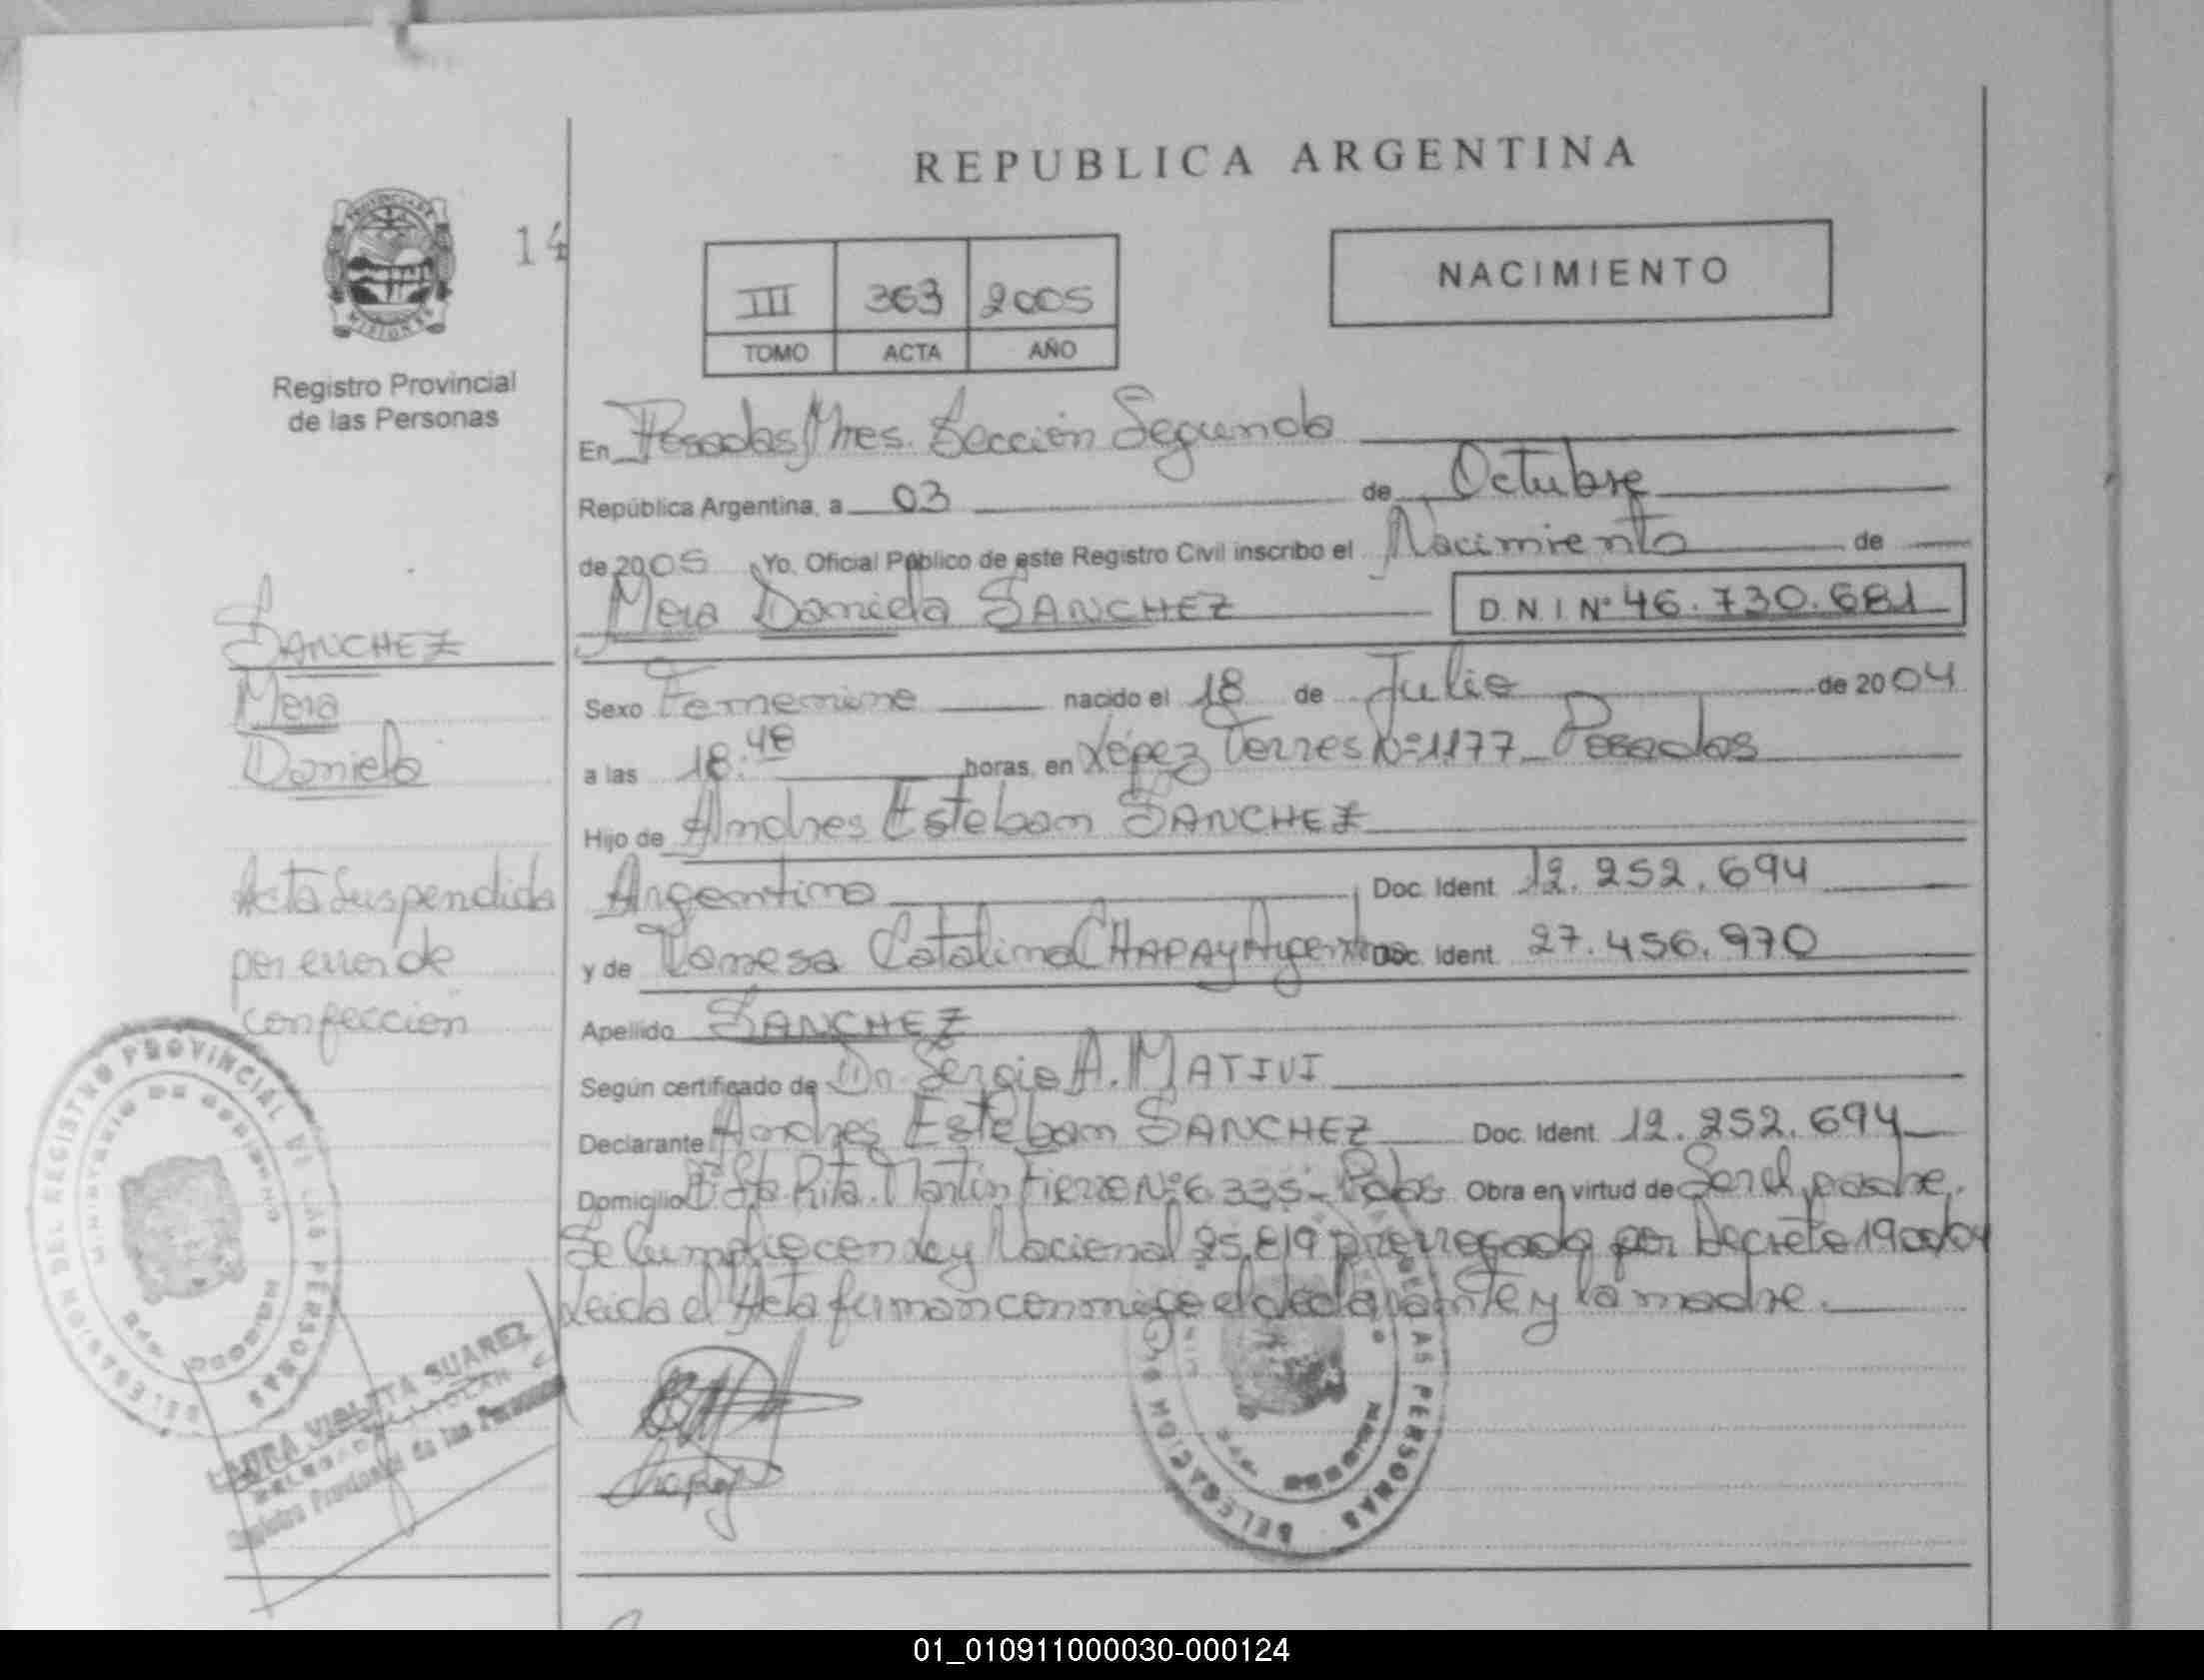 REPUBLICA ARGENTINA
PROVINCIA DE
MISIONES
14
Registro Provincial
de las Personas
III 363 2005
TOMO ACTA AÑO
NACIMIENTO
En Posadas Mnes. Sección Segunda
República Argentina, a 03 de Octubre
de 2005 Yo, Oficial Público de este Registro Civil inscribo el Nacimiento de
Meia Daniela SANCHEZ D.N.I Nº 46.730.681
SANCHEZ
Meia
Daniela
Sexo Femenino nacido el 18 de Julio de 2004
a las 18:48 horas, en López Torres Nº 1.177 Posadas
Hijo de Andres Esteban SANCHEZ
Argentino Doc. Ident. 12.252.694
y de Vanesa Catalina CHAPAY Argentina Doc. Ident. 27.456.970
Apellido SANCHEZ
Según certificado de Dr. Sergio A. MATIVI
Declarante Andres Esteban SANCHEZ Doc. Ident. 12.252.694
Domicilio Sta. Rita. Martín Fierro Nº 6.335- Pdas Obra en virtud de Ser el padre.
Se Cumplio con Ley Nacional 25.819 prorrogada por Decreto
Leida el Acta firman conmigo el declarante y la madre.
Acta Suspendida
por error de
confección
DELEGACION DEL REGISTRO PROVINCIAL DE LAS PERSONAS
MINISTERIO DE GOBIERNO
LAURA VIOLETA SUAREZ
Registro Provincial de las Personas
DELEGACION
DE LAS PERSONAS
01_010911000030-000124